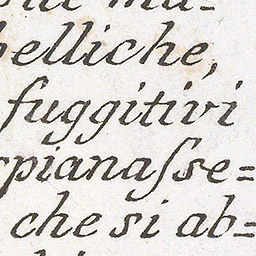 belliche,
fuggitivi
spianaſse=
che si ab=